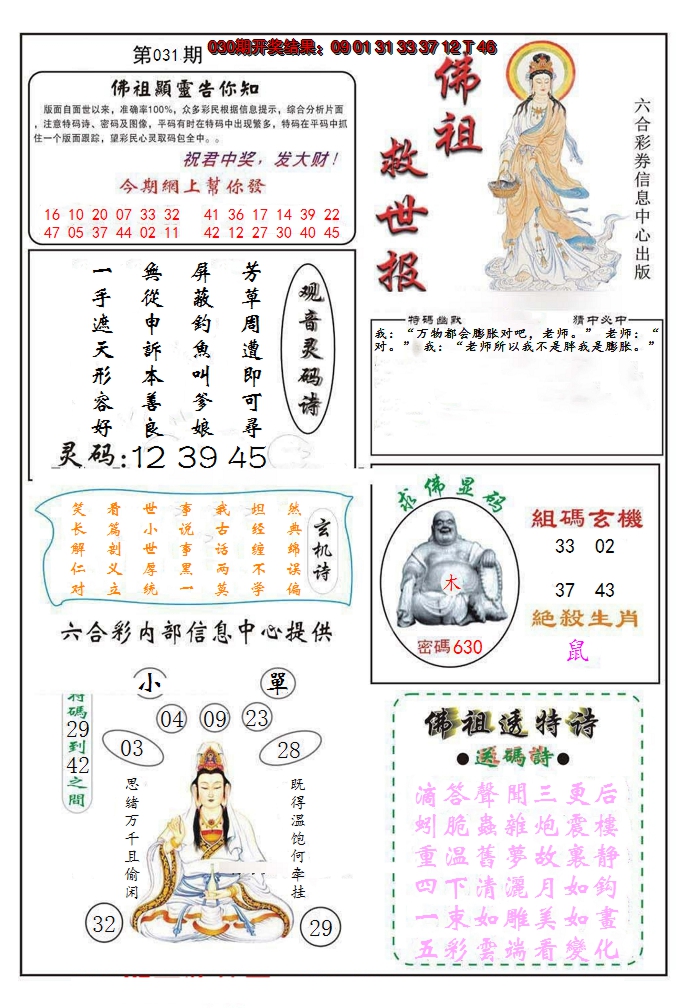 第031期
030期开奖结果：09 01 31 33 37 12 T 46
佛祖顯靈告你知
版面自面世以来，准确率100%，众多彩民根据信息提示，综合分析片面
，注意特码诗、密码及图像，平码有时在特码中出现繁多，特码在平码中抓
住一个版面跟踪，望彩民心灵取码包全中。。
祝君中奖，发大财！
今期網上幫你發
16 10 20 07 33 32 41 36 17 14 39 22
47 05 37 44 02 11 42 12 27 30 40 45
佛祖
救世报
六合彩券信息中心出版
观音灵码诗
芳草周遭即可尋
屏蔽釣魚叫爹娘
無從申訴本善良
一手遮天形容好
灵码:12 39 45
特碼幽默 猜中必中
我：“万物都会膨胀对吧，老师。” 老师：“
对。” 我：“老师所以我不是胖我是膨胀。”
玄机诗
笑看世事我坦然
长篇小说古经典
解剖世事话缠绵
仁义厚黑两不误
对立统一莫学偏
六合彩内部信息中心提供
求佛显码
木
密碼630
組碼玄機
33 02
37 43
絕殺生肖
鼠
小 單
特碼29到42之間
04 09 23
03 28
思绪万千且偷闲
既得温饱何牵挂
32 29
佛祖透特诗
●送碼詩●
滴答聲聞三更后
蚓脆蟲雜炮震樓
重温舊夢故裹静
四下清灑月如鈎
一束如雕美如畫
五彩雲端看變化